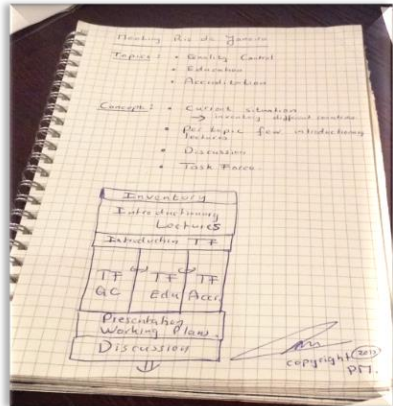 Meeting Rio de Janeiro
Topics: • Quality Control
• Education
• Accreditation
Concept: • Current situation
→ inventory different countries
• Per topic few introductionary
lectures
• Discussion
• Task Force
Inventory
Introductionary
Lectures
Introduction TF
TF TF TF
QC Edu Accr.
Presentation
Working Plans.
Discussion
copyright 2013
PM.